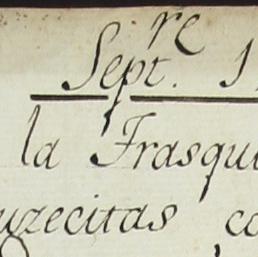 Sept.re 1
la Frasqui
uzecitas co